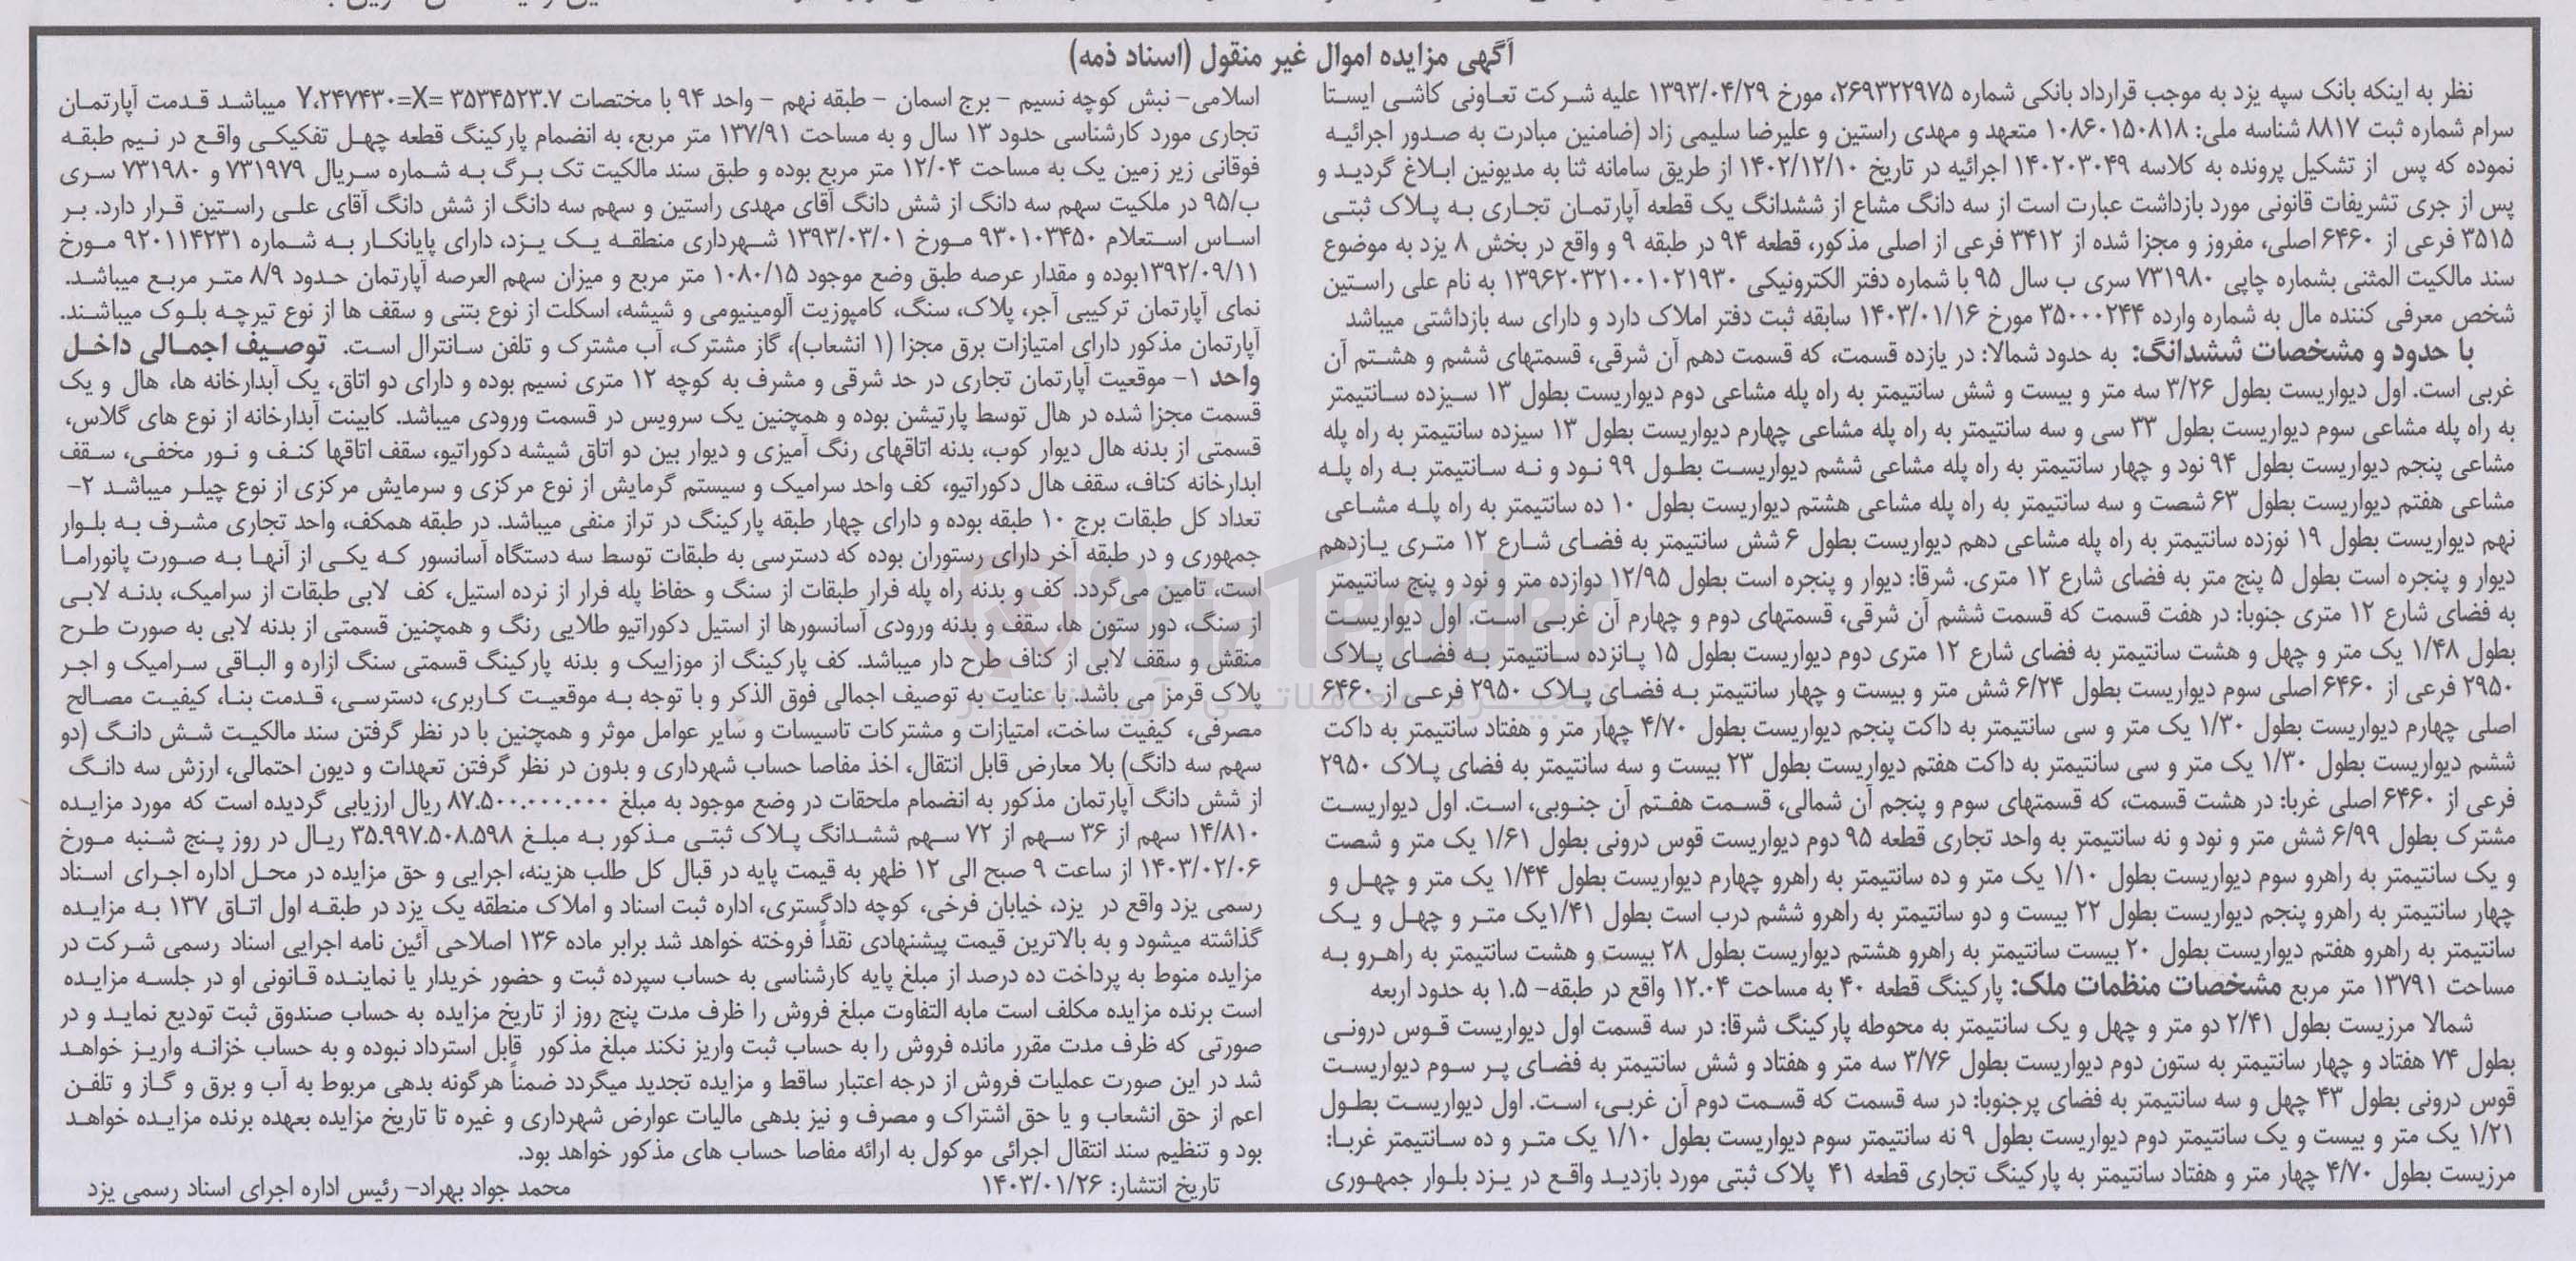 آگهی مزایده اموال غیر منقول (اسناد ذمه)
نظر به اینکه بانک سپه یزد به موجب قرارداد بانکی شماره ۲۶۹۳۲۲۹۷۵، مورخ ۱۳۹۳/۰۴/۲۹ علیه شرکت تعاونی کاشی ایستا
سرام شماره ثبت ۸۸۱۷ شناسه ملی: ۱۰۸۶۰۱۵۰۸۱۸ متعهد و مهدی راستین و علیرضا سلیمی زاد (ضامنین مبادرت به صدور اجرائیه
نموده که پس از تشکیل پرونده به کلاسه ۱۴۰۲۰۳۰۴۹ اجرائیه در تاریخ ۱۴۰۲/۱۲/۱۰ از طریق سامانه ثنا به مدیونین ابلاغ گردید و
پس از جری تشریفات قانونی مورد بازداشت عبارت است از سه دانگ مشاع از ششدانگ یک قطعه آپارتمان تجاری به پلاک ثبتی
۳۵۱۵ فرعی از ۶۴۶۰ اصلی، مفروز و مجزا شده از ۳۴۱۲ فرعی از اصلی مذکور، قطعه ۹۴ در طبقه ۹ و واقع در بخش ۸ یزد به موضوع
سند مالکیت المثنی بشماره چاپی ۷۳۱۹۸۰ سری ب سال ۹۵ با شماره دفتر الکترونیکی ۱۳۹۶۲۰۳۲۱۰۰۱۰۲۱۹۳۰ به نام علی راستین
شخص معرفی کننده مال به شماره وارده ۳۵۰۰۰۲۴۴ مورخ ۱۴۰۳/۰۱/۱۶ سابقه ثبت دفتر املاک دارد و دارای سه بازداشتی میباشد
با حدود و مشخصات ششدانگ: به حدود شمالا: در یازده قسمت، که قسمت دهم آن شرقی، قسمتهای ششم و هشتم آن
غربی است. اول دیواریست بطول ۳/۲۶ سه متر و بیست و شش سانتیمتر به راه پله مشاعی دوم دیواریست بطول ۱۳ سیزده سانتیمتر
به راه پله مشاعی سوم دیواریست بطول ۳۳ سی و سه سانتیمتر به راه پله مشاعی چهارم دیواریست بطول ۱۳ سیزده سانتیمتر به راه پله
مشاعی پنجم دیواریست بطول ۹۴ نود و چهار سانتیمتر به راه پله مشاعی ششم دیواریست بطول ۹۹ نود و نه سانتیمتر به راه پله
مشاعی هفتم دیواریست بطول ۶۳ شصت و سه سانتیمتر به راه پله مشاعی هشتم دیواریست بطول ۱۰ ده سانتیمتر به راه پله مشاعی
نهم دیواریست بطول ۱۹ نوزده سانتیمتر به راه پله مشاعی دهم دیواریست بطول ۶ شش سانتیمتر به فضای شارع ۱۲ متری یازدهم
دیوار و پنجره است بطول ۵ پنج متر به فضای شارع ۱۲ متری. شرقا: دیوار و پنجره است بطول ۱۲/۹۵ دوازده متر و نود و پنج سانتیمتر
به فضای شارع ۱۲ متری جنوبا: در هفت قسمت که قسمت ششم آن شرقی، قسمتهای دوم و چهارم آن غربی است. اول دیواریست
بطول ۱/۴۸ یک متر و چهل و هشت سانتیمتر به فضای شارع ۱۲ متری دوم دیواریست بطول ۱۵ پانزده سانتیمتر به فضای پلاک
۲۹۵۰ فرعی از ۶۴۶۰ اصلی سوم دیواریست بطول ۶/۲۴ شش متر و بیست و چهار سانتیمتر به فضای پلاک ۲۹۵۰ فرعی از ۶۴۶۰
اصلی چهارم دیواریست بطول ۱/۳۰ یک متر و سی سانتیمتر به داکت پنجم دیواریست بطول ۴/۷۰ چهار متر و هفتاد سانتیمتر به داکت
ششم دیواریست بطول ۱/۳۰ یک متر و سی سانتیمتر به داکت هفتم دیواریست بطول ۲۳ بیست و سه سانتیمتر به فضای پلاک ۲۹۵۰
فرعی از ۶۴۶۰ اصلی غربا: در هشت قسمت، که قسمتهای سوم و پنجم آن شمالی، قسمت هفتم آن جنوبی، است. اول دیواریست
مشترک بطول ۶/۹۹ شش متر و نود و نه سانتیمتر به واحد تجاری قطعه ۹۵ دوم دیواریست قوس درونی بطول ۱/۶۱ یک متر و شصت
و یک سانتیمتر به راهرو سوم دیواریست بطول ۱/۱۰ یک متر و ده سانتیمتر به راهرو چهارم دیواریست بطول ۱/۴۴ یک متر و چهل و
چهار سانتیمتر به راهرو پنجم دیواریست بطول ۲۲ بیست و دو سانتیمتر به راهرو ششم درب است بطول ۱/۴۱یک متر و چهل و یک
سانتیمتر به راهرو هفتم دیواریست بطول ۲۰ بیست سانتیمتر به راهرو هشتم دیواریست بطول ۲۸ بیست و هشت سانتیمتر به راهرو به
مساحت ۱۳۷۹۱ متر مربع مشخصات منظمات ملک: پارکینگ قطعه ۴۰ به مساحت ۱۲.۰۴ واقع در طبقه- ۱.۵ به حدود اربعه
شمالا مرزیست بطول ۲/۴۱ دو متر و چهل و یک سانتیمتر به محوطه پارکینگ شرقا: در سه قسمت اول دیواریست قوس درونی
بطول ۷۴ هفتاد و چهار سانتیمتر به ستون دوم دیواریست بطول ۳/۷۶ سه متر و هفتاد و شش سانتیمتر به فضای پر سوم دیواریست
قوس درونی بطول ۴۳ چهل و سه سانتیمتر به فضای پرجنوبا: در سه قسمت که قسمت دوم آن غربی، است. اول دیواریست بطول
۱/۲۱ یک متر و بیست و یک سانتیمتر دوم دیواریست بطول ۹ نه سانتیمتر سوم دیواریست بطول ۱/۱۰ یک متر و ده سانتیمتر غربا:
مرزیست بطول ۴/۷۰ چهار متر و هفتاد سانتیمتر به پارکینگ تجاری قطعه ۴۱ پلاک ثبتی مورد بازدید واقع در یزد بلوار جمهوری
اسلامی- نبش کوچه نسیم - برج اسمان - طبقه نهم - واحد ۹۴ با مختصات Y،۲۴۷۴۳۰=X= ۳۵۳۴۵۲۳.۷ میباشد قدمت آپارتمان
تجاری مورد کارشناسی حدود ۱۳ سال و به مساحت ۱۳۷/۹۱ متر مربع، به انضمام پارکینگ قطعه چهل تفکیکی واقع در نیم طبقه
فوقانی زیر زمین یک به مساحت ۱۲/۰۴ متر مربع بوده و طبق سند مالکیت تک برگ به شماره سریال ۷۳۱۹۷۹ و ۷۳۱۹۸۰ سری
ب/۹۵ در ملکیت سهم سه دانگ از شش دانگ آقای مهدی راستین و سهم سه دانگ از شش دانگ آقای علی راستین قرار دارد. بر
اساس استعلام ۹۳۰۱۰۳۴۵۰ مورخ ۱۳۹۳/۰۳/۰۱ شهرداری منطقه یک یزد، دارای پایانکار به شماره ۹۲۰۱۱۴۲۳۱ مورخ
۱۳۹۲/۰۹/۱۱بوده و مقدار عرصه طبق وضع موجود ۱۰۸۰/۱۵ متر مربع و میزان سهم العرصه آپارتمان حدود ۸/۹ متر مربع میباشد.
نمای آپارتمان ترکیبی آجر، پلاک، سنگ، کامپوزیت آلومینیومی و شیشه، اسکلت از نوع بتنی و سقف ها از نوع تیرچه بلوک میباشند.
آپارتمان مذکور دارای امتیازات برق مجزا (۱ انشعاب)، گاز مشترک، آب مشترک و تلفن سانترال است. توصیف اجمالی داخل
واحد ۱- موقعیت آپارتمان تجاری در حد شرقی و مشرف به کوچه ۱۲ متری نسیم بوده و دارای دو اتاق، یک آبدارخانه ها، هال و یک
قسمت مجزا شده در هال توسط پارتیشن بوده و همچنین یک سرویس در قسمت ورودی میباشد. کابینت آبدارخانه از نوع های گلاس،
قسمتی از بدنه هال دیوار کوب، بدنه اتاقهای رنگ آمیزی و دیوار بین دو اتاق شیشه دکوراتیو، سقف اتاقها کنف و نور مخفی، سقف
ابدارخانه کناف، سقف هال دکوراتیو، کف واحد سرامیک و سیستم گرمایش از نوع مرکزی و سرمایش مرکزی از نوع چیلر میباشد ۲-
تعداد کل طبقات برج ۱۰ طبقه بوده و دارای چهار طبقه پارکینگ در تراز منفی میباشد. در طبقه همکف، واحد تجاری مشرف به بلوار
جمهوری و در طبقه آخر دارای رستوران بوده که دسترسی به طبقات توسط سه دستگاه آسانسور که یکی از آنها به صورت پانوراما
است، تامین می‌گردد. کف و بدنه راه پله فرار طبقات از سنگ و حفاظ پله فرار از نرده استیل، کف لابی طبقات از سرامیک، بدنه لابی
از سنگ، دور ستون ها، سقف و بدنه ورودی آسانسورها از استیل دکوراتیو طلایی رنگ و همچنین قسمتی از بدنه لابی به صورت طرح
منقش و سقف لابی از کناف طرح دار میباشد. کف پارکینگ از موزاییک و بدنه پارکینگ قسمتی سنگ ازاره و الباقی سرامیک و اجر
پلاک قرمز می باشد. با عنایت به توصیف اجمالی فوق الذکر و با توجه به موقعیت کاربری، دسترسی، قدمت بنا، کیفیت مصالح
مصرفی، کیفیت ساخت، امتیازات و مشترکات تاسیسات و سایر عوامل موثر و همچنین با در نظر گرفتن سند مالکیت شش دانگ (دو
سهم سه دانگ) بلا معارض قابل انتقال، اخذ مفاصا حساب شهرداری و بدون در نظر گرفتن تعهدات و دیون احتمالی، ارزش سه دانگ
از شش دانگ آپارتمان مذکور به انضمام ملحقات در وضع موجود به مبلغ ۸۷.۵۰۰.۰۰۰.۰۰۰ ریال ارزیابی گردیده است که مورد مزایده
۱۴/۸۱۰ سهم از ۳۶ سهم از ۷۲ سهم ششدانگ پلاک ثبتی مذکور به مبلغ ۳۵.۹۹۷.۵۰۸.۵۹۸ ریال در روز پنج شنبه مورخ
۱۴۰۳/۰۲/۰۶ از ساعت ۹ صبح الی ۱۲ ظهر به قیمت پایه در قبال کل طلب هزینه، اجرایی و حق مزایده در محل اداره اجرای اسناد
رسمی یزد واقع در یزد، خیابان فرخی، کوچه دادگستری، اداره ثبت اسناد و املاک منطقه یک یزد در طبقه اول اتاق ۱۳۷ به مزایده
گذاشته میشود و به بالاترین قیمت پیشنهادی نقداً فروخته خواهد شد برابر ماده ۱۳۶ اصلاحی آئین نامه اجرایی اسناد رسمی شرکت در
مزایده منوط به پرداخت ده درصد از مبلغ پایه کارشناسی به حساب سپرده ثبت و حضور خریدار یا نماینده قانونی او در جلسه مزایده
است برنده مزایده مکلف است مابه التفاوت مبلغ فروش را ظرف مدت پنج روز از تاریخ مزایده به حساب صندوق ثبت تودیع نماید و در
صورتی که ظرف مدت مقرر مانده فروش را به حساب ثبت واریز نکند مبلغ مذکور قابل استرداد نبوده و به حساب خزانه واریز خواهد
شد در این صورت عملیات فروش از درجه اعتبار ساقط و مزایده تجدید میگردد ضمناً هرگونه بدهی مربوط به آب و برق و گاز و تلفن
اعم از حق انشعاب و یا حق اشتراک و مصرف و نیز بدهی مالیات عوارض شهرداری و غیره تا تاریخ مزایده بعهده برنده مزایده خواهد
بود و تنظیم سند انتقال اجرائی موکول به ارائه مفاصا حساب های مذکور خواهد بود.
تاریخ انتشار: ۱۴۰۳/۰۱/۲۶
محمد جواد بهراد- رئیس اداره اجرای اسناد رسمی یزد